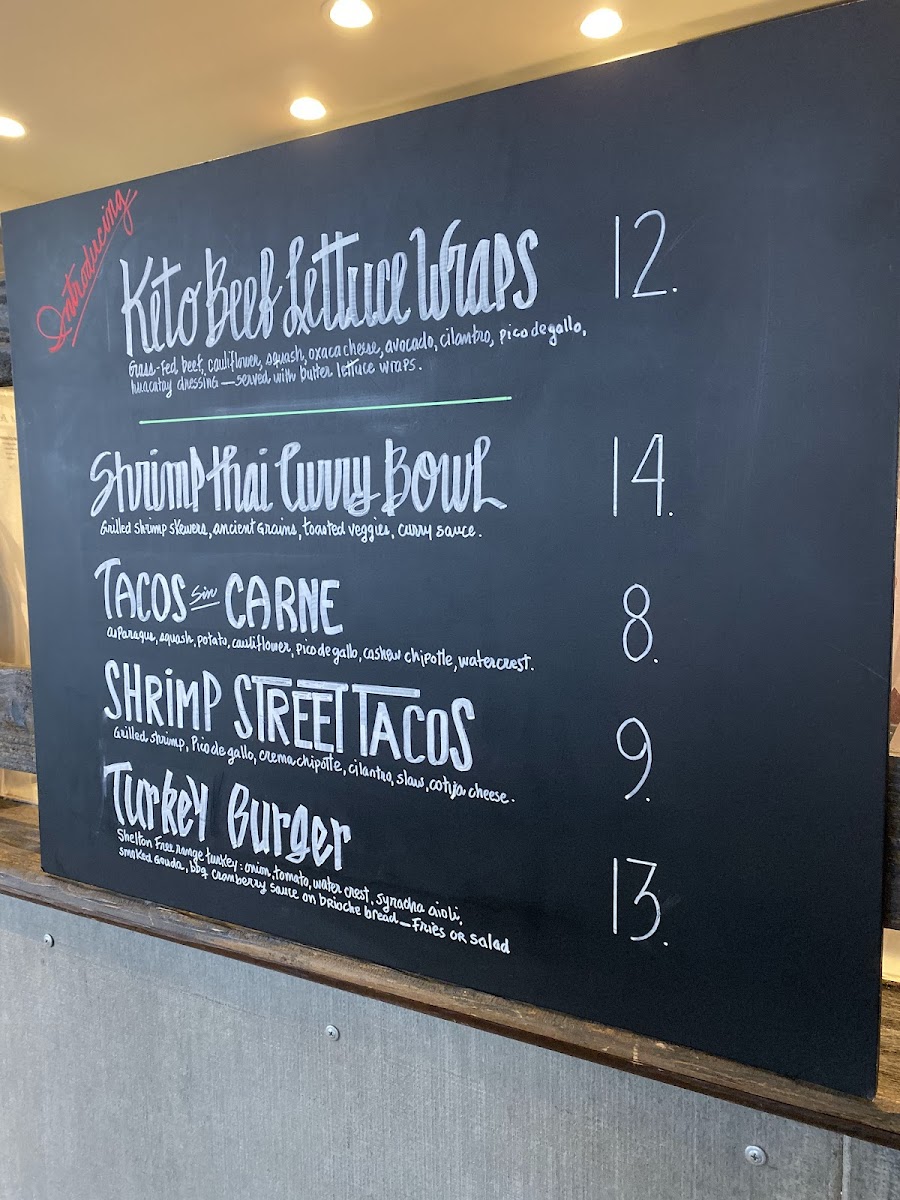 Introducing
Keto Beef Lettuce Wraps 12.
Grass-fed beef, cauliflower, squash, oxaca cheese, avocado, cilantro, pico de gallo,
huacatay dressing — served with butter lettuce wraps.
Shrimp Thai Curry Bowl 14.
Grilled shrimp skewers, ancient grains, toasted veggies, curry sauce.
TACOS sin CARNE 8.
asparagus, squash, potato, cauliflower, pico de gallo, cashew chipotle, watercrest.
SHRIMP STREET TACOS 9.
Grilled shrimp, Pico de gallo, crema chipotle, cilantro, slaw, cotija cheese.
Turkey Burger 13.
Shelton Free range turkey: onion, tomato, water crest, syracha aioli,
smoked gouda, bbq cranberry sauce on brioche bread — Fries or salad